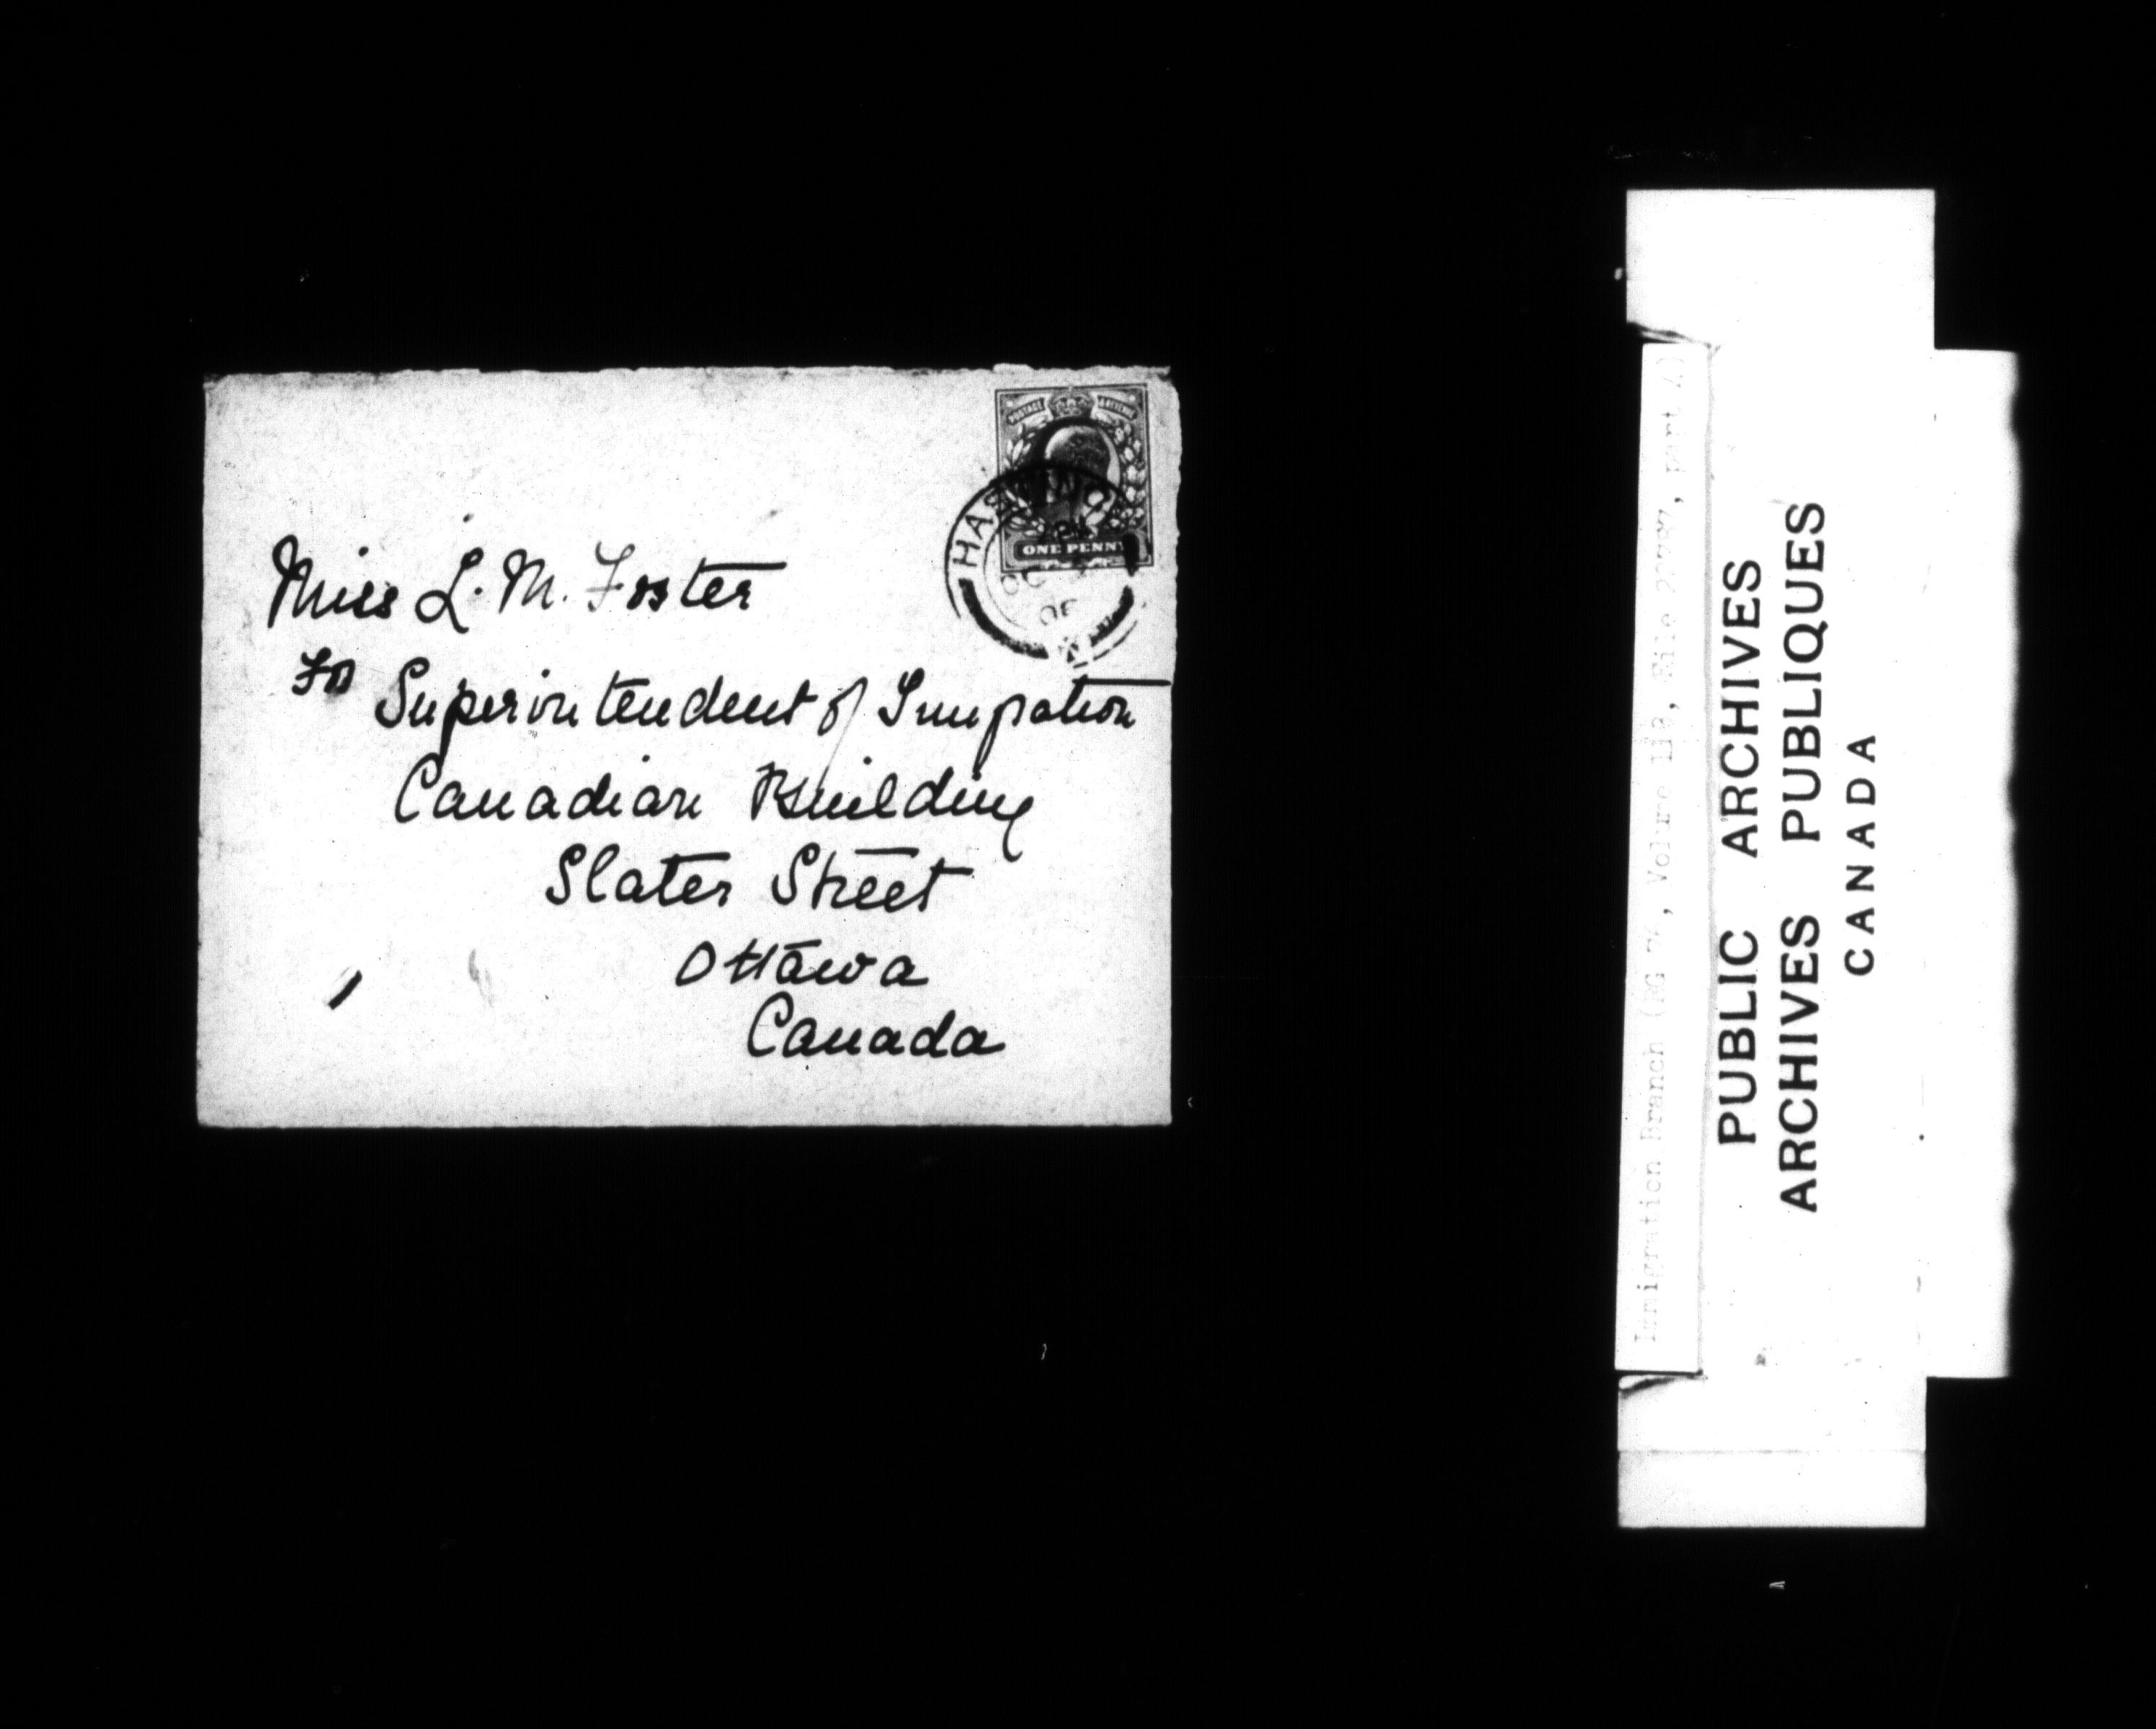 POSTAGE REVENUE
HASTINGS
ONE PENNY
OC
Miss L. M. Foster
Superintendent of Imigration
Canadian Building
Slater Street
Ottawa
Canada
Immigration Branch (RG 76, Volume File part
PUBLIC ARCHIVES
ARCHIVES PUBLIQUES
CANADA